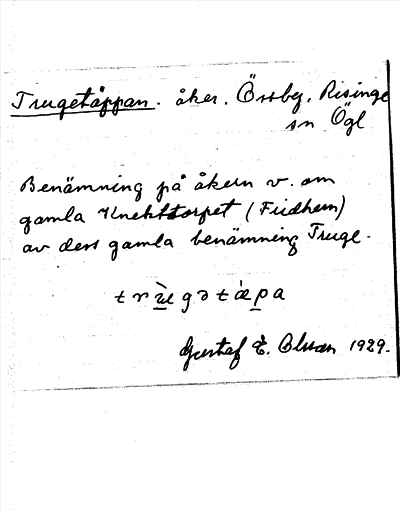 Trugetäppan. åker. Össby, Risinge
sn Ögl
Benämning på åkern v. om
gamla Knekttorpet (Fridhem)
av ders gamla benämning Truge.
Gustaf E. Olsson 1929.